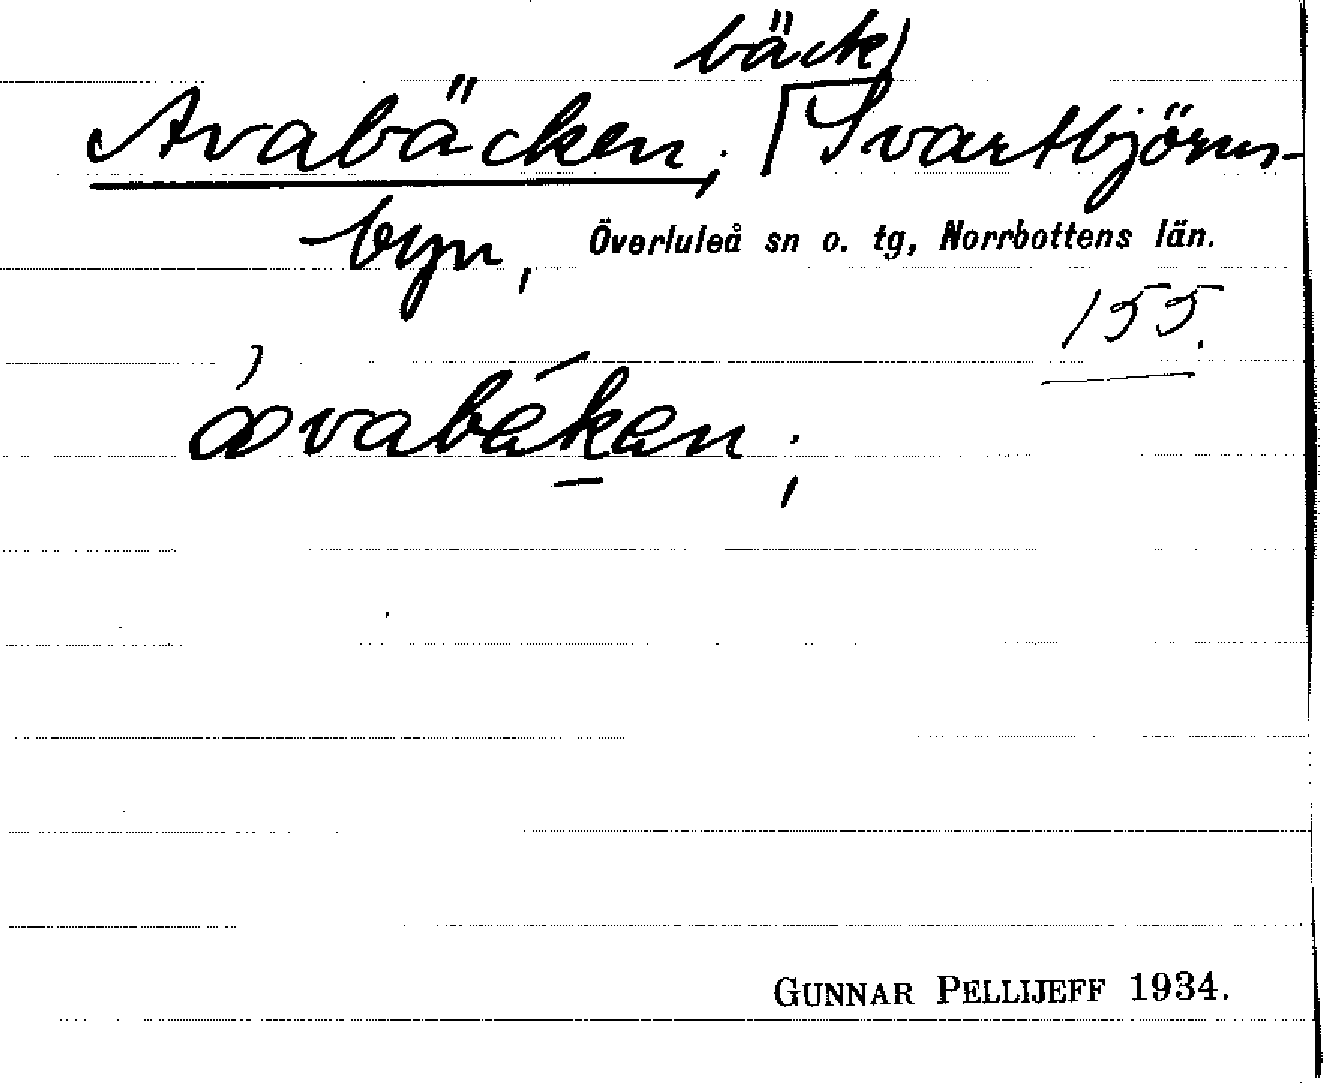 bäck
Avabäcken; Svartbjörns-
byn, Överluleå sn o. tg, Norrbottens län.
155.
GUNNAR PELLIJEFF 1934.